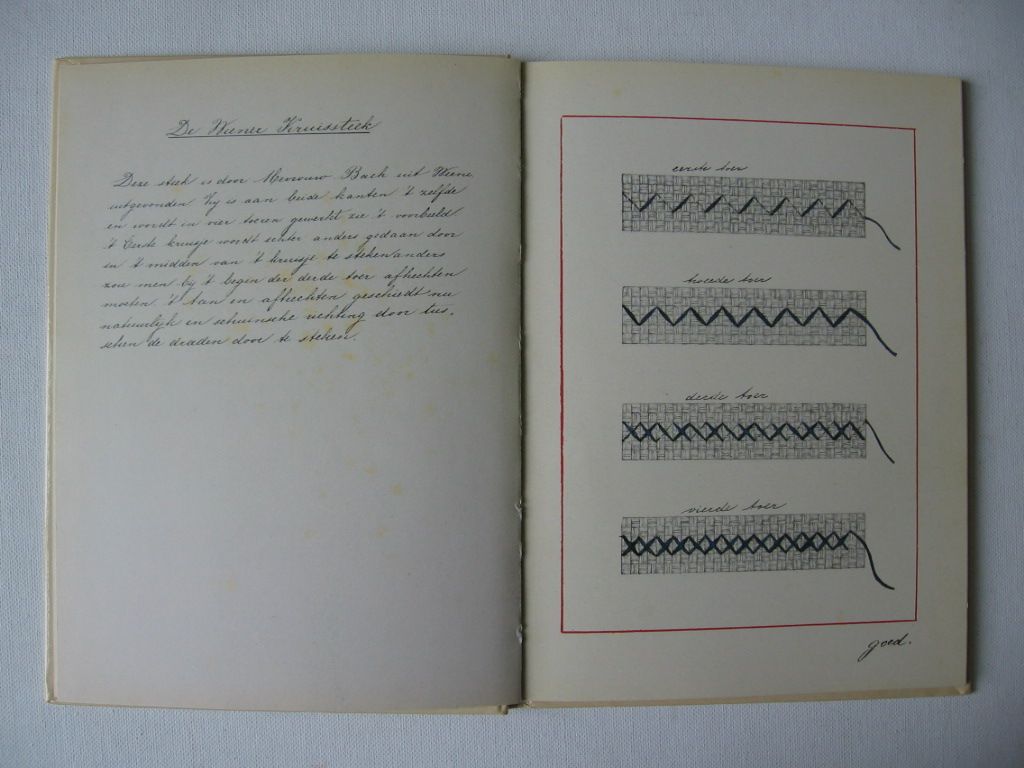 De Weener Kruissteek
Deze steek is door Mevrouw Bach uit Weenen
uitgevonden Zij is aan beide kanten 't zelfde
en wordt in vier toeren gewerkt zie 't voorbeeld
't Eerste kruisje wordt echter anders gedaan door
in 't midden van 't kruisje te steken anders
zou men bij 't begin der derde toer afhechten
moeten 't Aan en afhechten geschiedt nu
natuurlijk en schuinsche richting door tus-
schen de draden door te steken.
eerste toer
tweede toer
derde toer
vierde toer
goed.